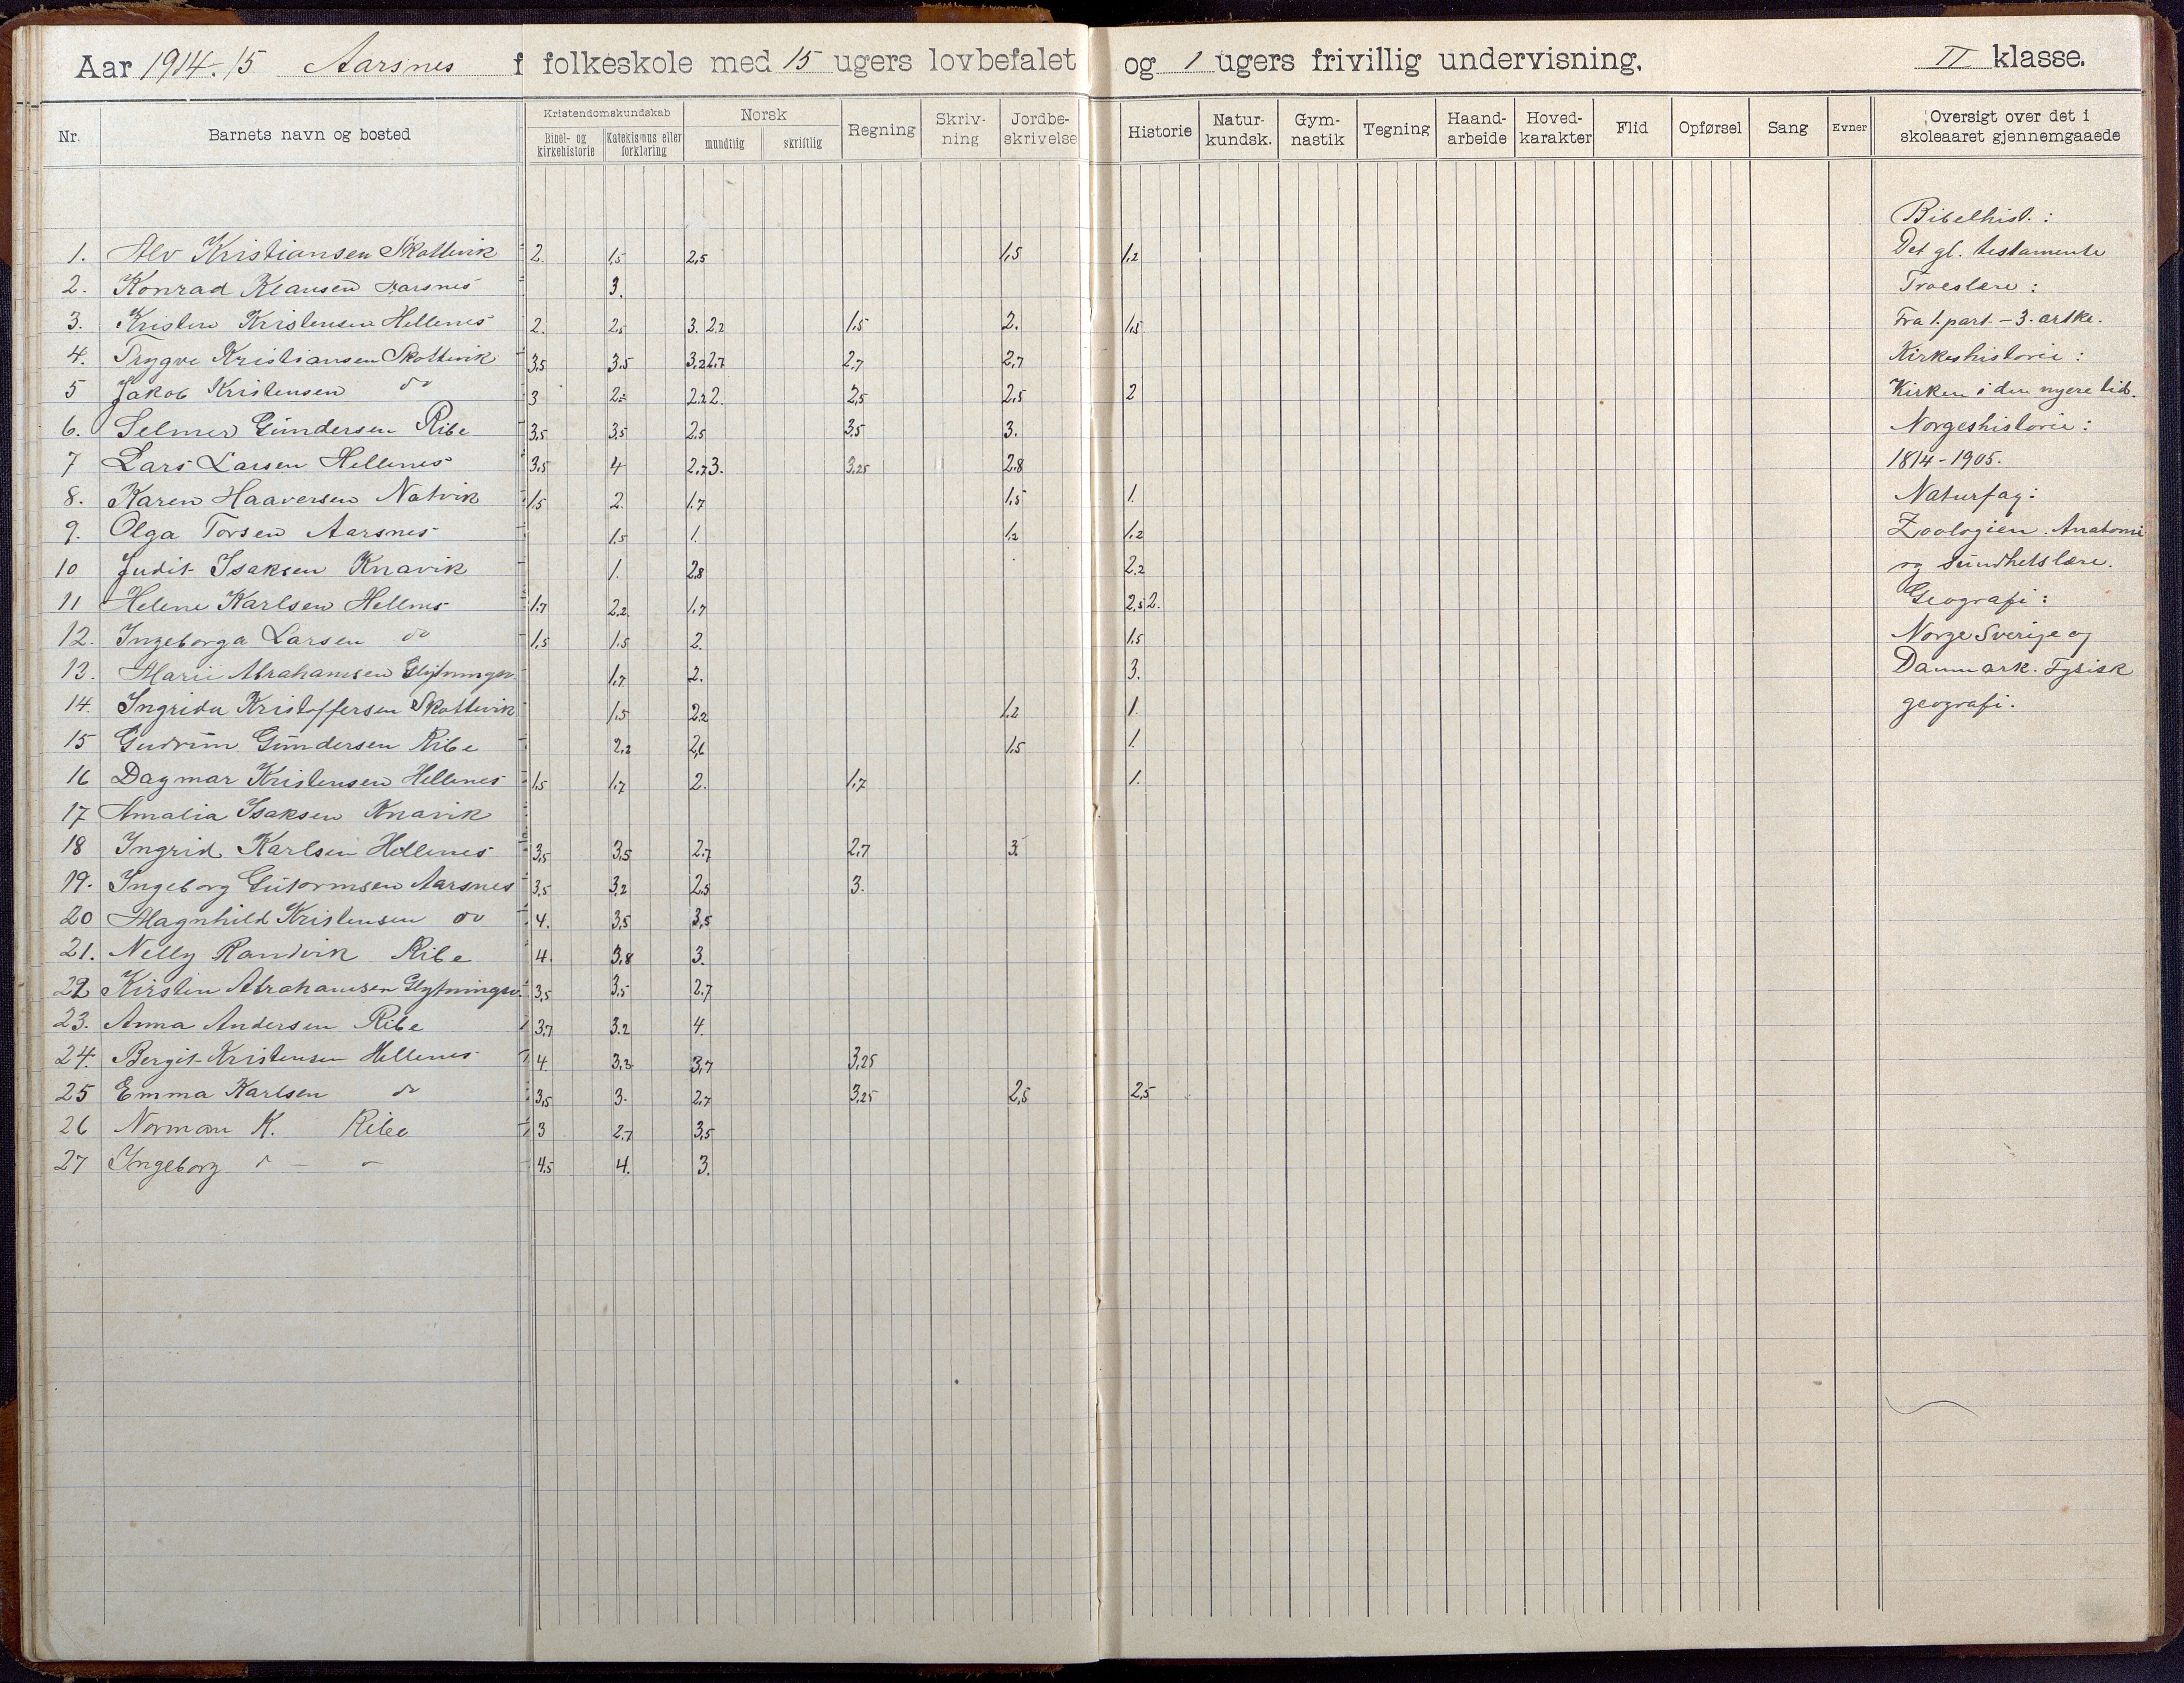 Aar 1914.15 Aarsnes f folkeskole med 15 ugers lovbefalet og 1 ugers frivillig undervisning. II klasse.
Nr. Barnets navn og bosted Kristendomskundskab Bibel- og kirkehistorie Katekismus eller forklaring Norsk mundtlig skriftlig Regning Skriv-ning Jordbe-skrivelse Historie Natur-kundsk. Gym-nastik Tegning Haand-arbeide Hoved-karakter Flid Opførsel Sang Evner Oversigt over det i skoleaaret gjennemgaaede
Bibelhist.:
1. Alv Kristiansen Skottevik 2. 1,5 2,5 1,5 1,2 Det gl. testamente
2. Konrad Klausen Aarsnes 3. Troeslære:
3. Kristen Kristensen Hellenes 2. 2,5 3. 2,2 1,5 2. 1,5 Fra 1. part. - 3. artke.
4. Trygve Kristiansen Skottevik 3,5 3,5 3,2 2,7 2,7 2,7 Kirkeshistorie:
5 Jakob Kristensen do 3 2,2 2. 2,5 2,5 2 Kirken i den nyere tid.
6. Selmer Gundersen Ribe 3,5 3,5 2,5 3,5 3. Norgeshistorie:
7 Lars Larsen Hellenes 3,5 4 2,7 3. 3,25 2,8 1814-1905.
8. Karen Haaversen Natvik 1,5 2. 1,7 1,5 1. Naturfag:
9. Olga Torsen Aarsnes 1,5 1. 1,2 1,2 Zoologien. Anatomi
10 Judit Isaksen Knavik 1. 2,8 2,2 og sundhetslære.
11 Helene Karlsen Hellenes 1,7 2,2 1,7 2,5 2. Geografi:
12. Ingeborga Larsen do 1,5 1,5 2. 1,5 Norge Sverige og
13. Marie Abrahamsen 1,7 2. 3. Danmark. Fysisk
14. Ingrida Kristoffersen Skottevik 1,5 2,2 1,2 1. geografi.
15 Gudrun Gundersen Ribe 2,2 2,6 1,5 1.
16 Dagmar Kristensen Hellenes 1,5 1,7 2. 1,7 1.
17 Amalia Isaksen Knavik
18 Ingrid Karlsen Hellenes 3,5 3,5 2,7 2,7 3.
19. Ingeborg Gutormsen Aarsnes 3,5 3,2 2,5 3.
20 Magnhild Kristensen do 4. 3,5 3,5
21. Nelly Randvik Ribe 4. 3,8 3.
22 Kirsten Abrahamsen 3,5 3,5 2,7
23. Anna Andersen Ribe 3,7 3,2 4.
24. Bergit Kristensen Hellenes 4. 3,3 3,7 3,25
25 Emma Karlsen do 3,5 3. 2,7 3,25 2,5 2,5
26 Norman K. Ribe 3 2,7 3,5
27 Ingeborg 4,5 4. 3.